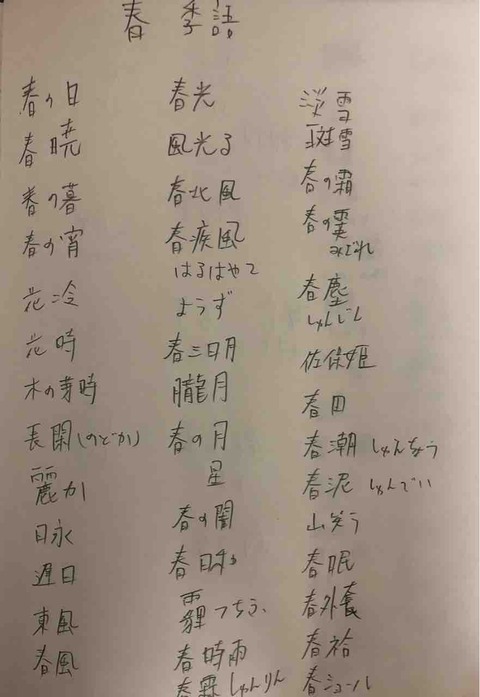 春 季語
春の日
春暁
春の暮
春の宵
花冷
花時
木の芽時
長閑(のどか)
麗か
日永
遅日
東風
春風
春光
風光る
春北風
春疾風
はるはやて
ようず
春三日月
朧月
春の月
星
春の闇
霾つちふ
春時雨
春霖しゅんりん
淡雪
斑雪
春の霜
春の霙
みぞれ
春塵
しゅんじん
佐保姫
春田
春潮しゅんちょう
春泥しゅんでい
山笑う
春眠
春外套
春袷
春ショール